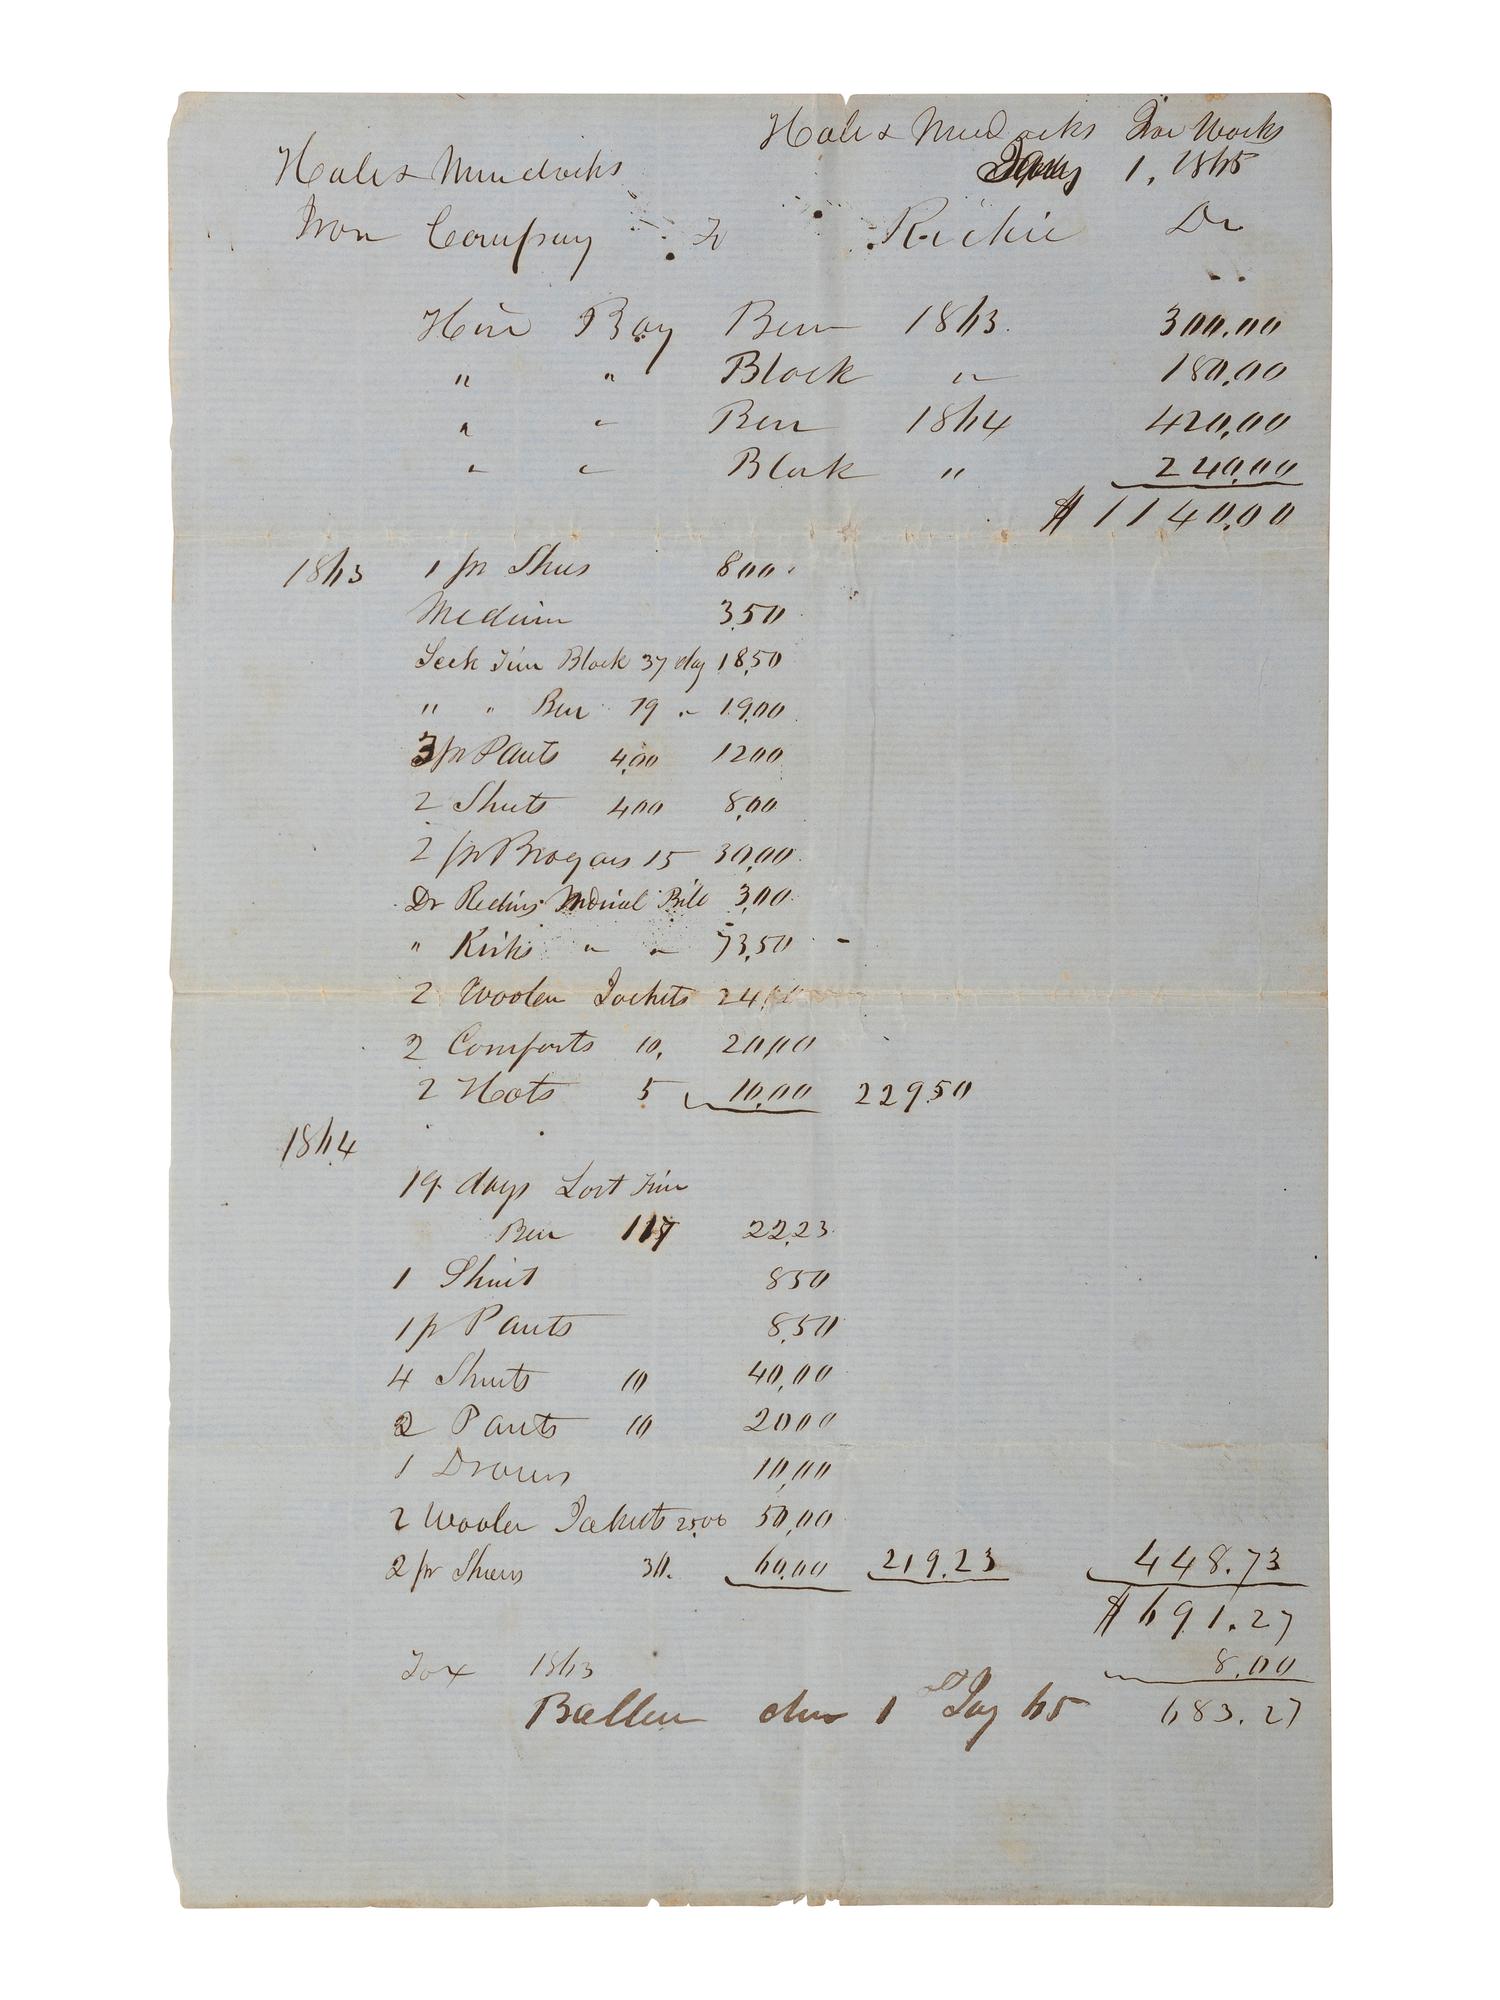 Hale & Murdocks Iron Works
Jany 1, 1865
Hale & Murdocks
Iron Company To Richie Dr
Hire Boy Ben 1863 300.00
" " Block " 180.00
" " Ben 1864 420.00
" " Block " 240.00
$1140.00
1863 1 pr Shues 800
Medium 3.50
Seck Tim Block 37 day 18.50
" " Ben 19 " 19.00
3 pr Pants 4.00 1200
2 Shuts 400 8.00
2 pr Brogans 15 30.00
Dr Medical Bill 3.00
" Kirks " " 73.50
2 Woolen Jackets 24.00
2 Comforts 10, 20.00
2 Hats 5 10.00 229.50
1864
19 days Lost Tim
Ben 117 22.23
1 Shirt 850
1 pr Pants 8.50
4 Shuts 10 40.00
2 Pants 10 2000
1 Drours 10.00
2 Woolen Jackets 25.00 50.00
2 pr Shues 30. 60.00 219.23 448.73
$691.27
Tax 1863 8.00
Ballen due 1st Jay 65 683.27